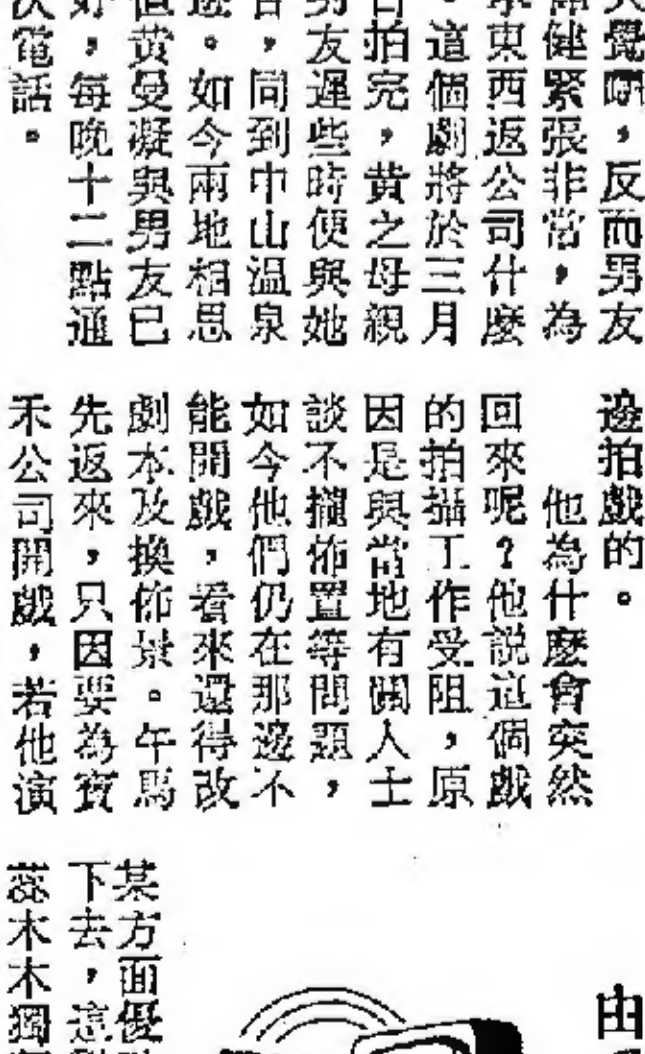 覺瞓，反而男友
健緊張非常，為
東西返公司什麼
。這個劇將於三月
拍完，黄之母親
男友遲些時便與她
，同到中山温泉
。如今兩地相思
但黄曼凝與男友已
好，每晚十二點通
次電話。
邊拍戲的。
他為什麼會突然
回來呢？他説這個戲
的拍攝工作受阻，原
因是與當地有關人士
談不攏佈置等問題，
如今他們仍在那邊不
能開戲，看來還得改
劇本及換佈景。午馬
先返來，只因要為寶
禾公司開戲，若他演
由
某方面優
下去，這
蕊木木獨